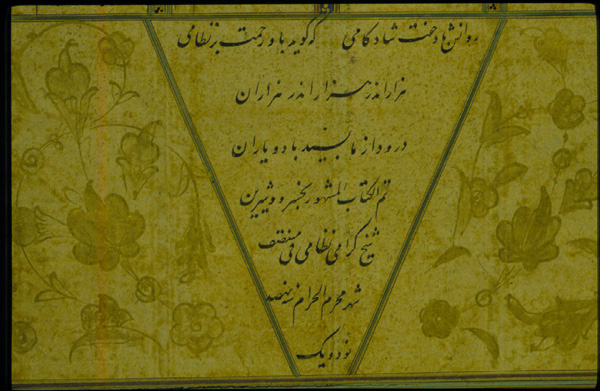 روانش باد جفت شادکامی که گوید باد رحمت بر نظامی
هزار اندر هزار اندر هزاران
درود از ما بسید باد و یاران
تم الکتاب المشهور بخسرو و شیرین
شیخ گرامی نظامی فی منتصف
شهر محرم الحرام سنه نهصد
نود و یک